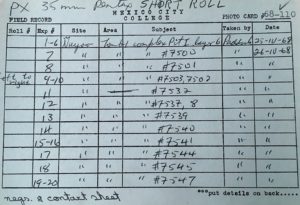 PX 35 mm Pentax SHORT ROLL
MEXICO CITY
COLLEGE
FIELD RECORD PHOTO CARD #68-110
Roll # Exp # Site Area Subject Taken by Date
1-6 Tomb 1 complex Pit 1 layer 6 25-10-68
7 " " #7500 " 26-10-68
8 " " #7501 " "
left to right 9-10 " " #7503, 7502 " "
11 " " #7532 " "
12 " " #7537, 8 " "
13 " " #7539 " "
14 " " #7540 " "
15-16 " " #7541 " "
17 " " #7544 " "
18 " " #7545 " "
19-20 " " #7547 " "
negs. & contact sheet ***put details on back.....